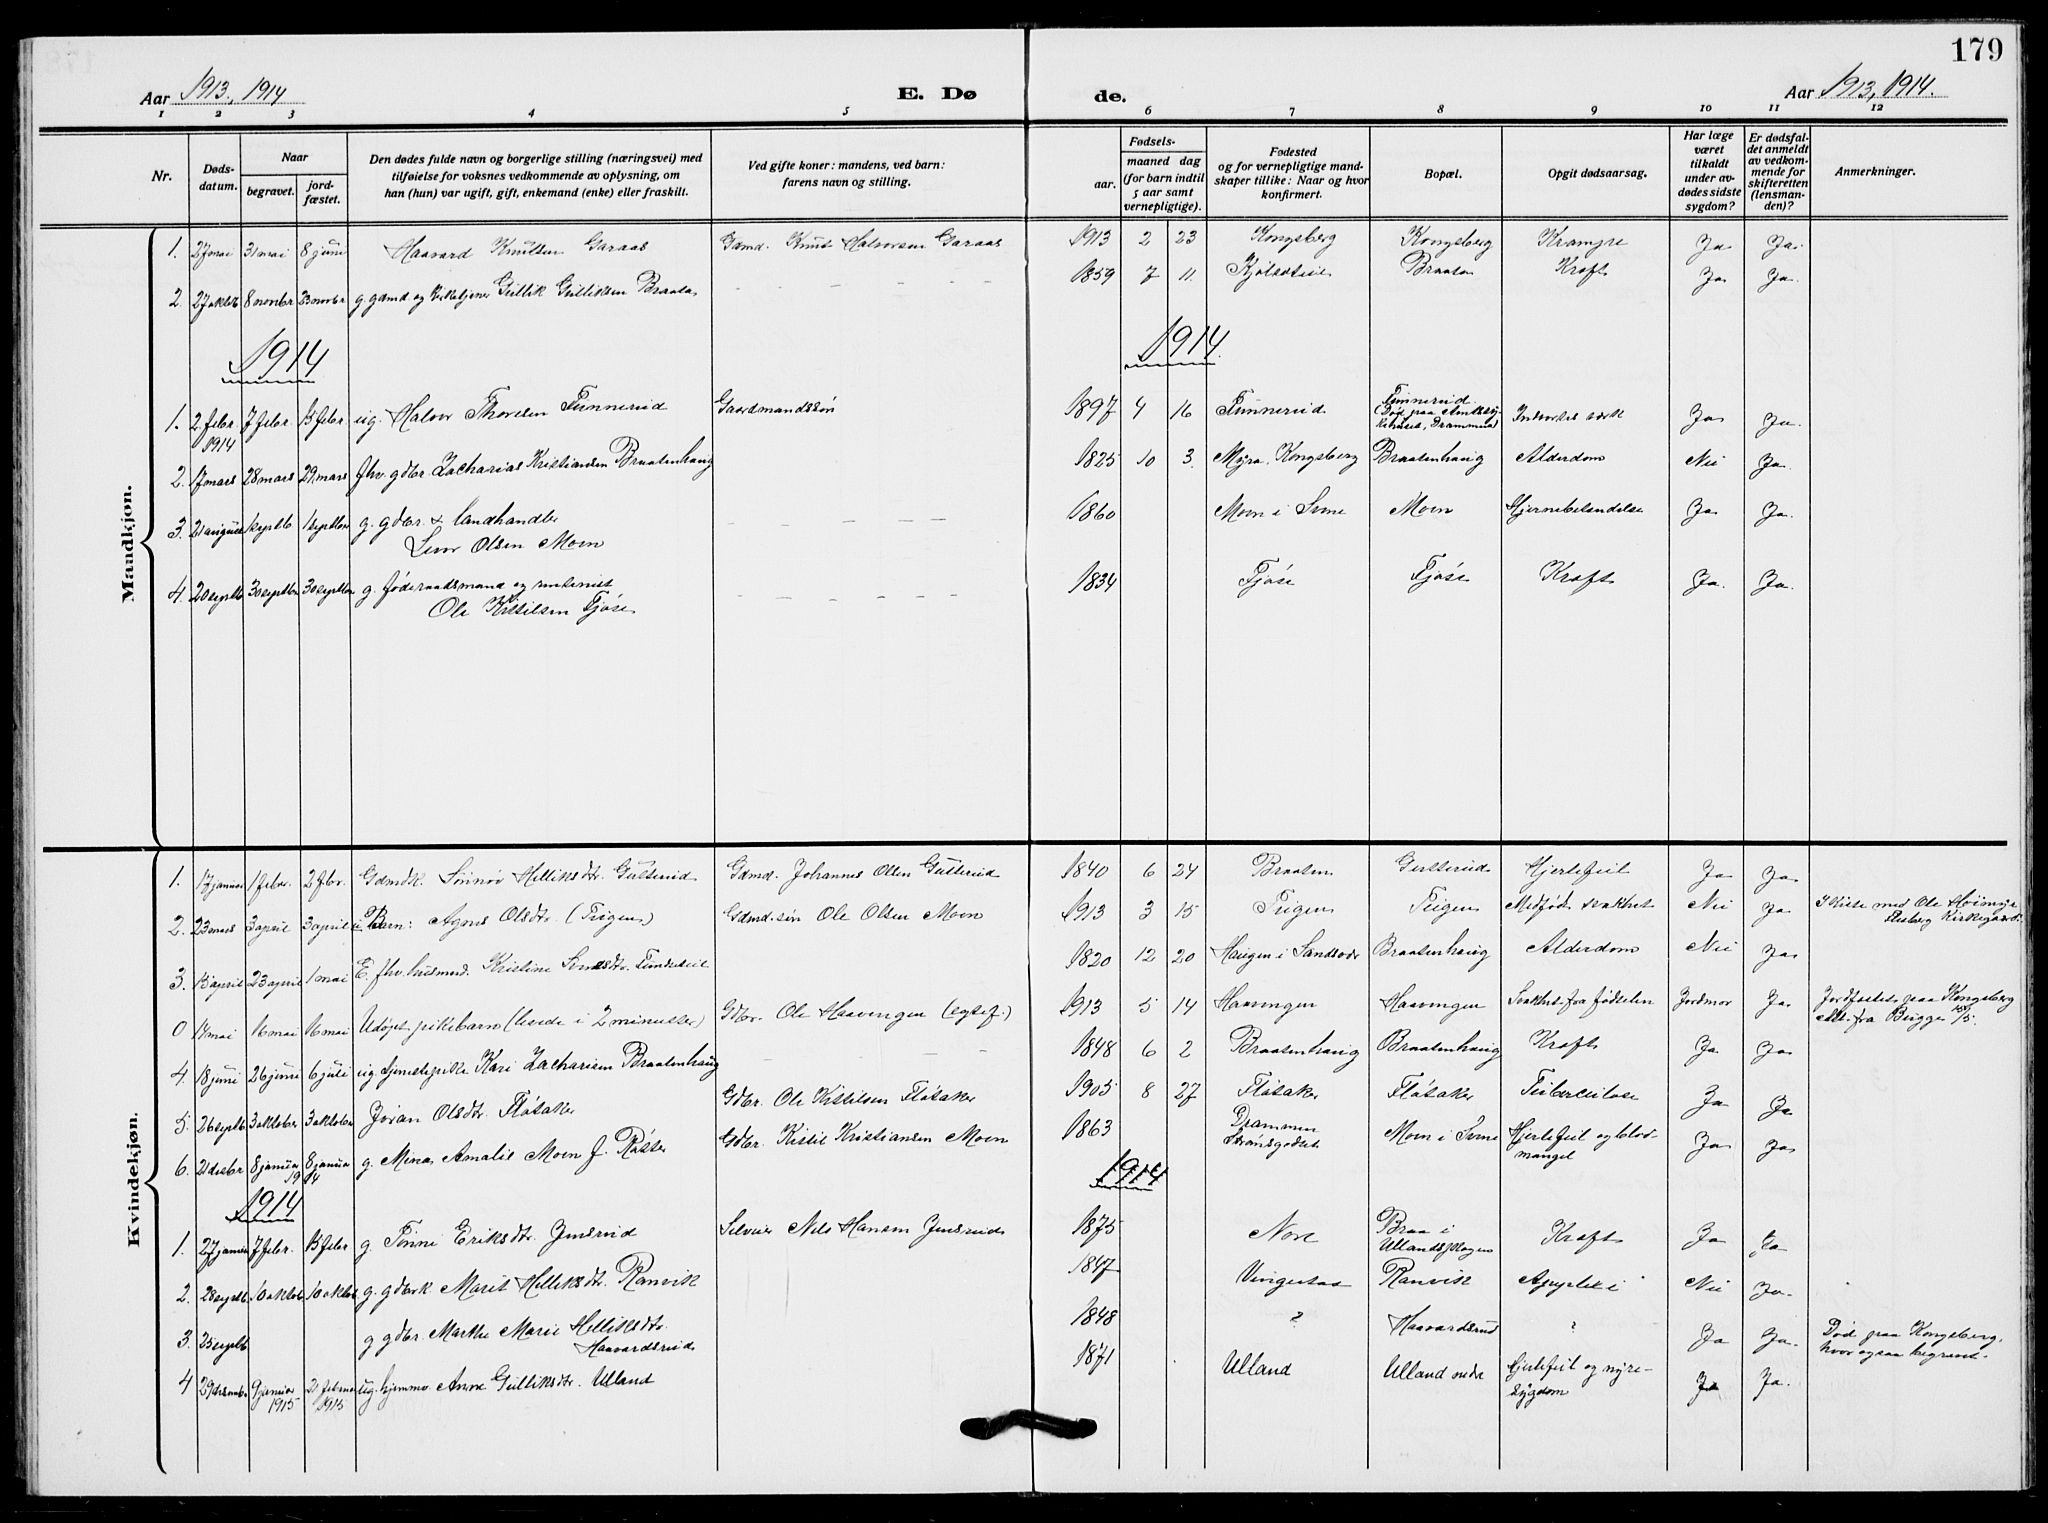 179
Aar 1913, 1914
E. Dø
de.
Aar 1913, 1914.
1 2 3 4 5 6 7 8 9 10 11 12
Nr.
Døds-
datum.
Naar
begravet.
jord-
fæstet.
Den dødes fulde navn og borgerlige stilling (næringsvei) med
tilføielse for voksnes vedkommende av oplysning, om
han (hun) var ugift, gift, enkemand (enke) eller fraskilt.
Ved gifte koner: mandens, ved barn:
farens navn og stilling.
Fødsels-
aar.
maaned dag
(for barn indtil
5 aar samt
vernepligtige).
Fødested
og for vernepligtige mand-
skaper tillike: Naar og hvor
konfirmert.
Bopæl.
Opgit dødsaarsag.
Har læge
været
tilkaldt
under av-
dødes sidste
sygdom?
Er dødsfal-
det anmeldt
av vedkom-
mende for
skifteretten
(lensman-
den)?
Anmerkninger.
Mandkjøn.
1. 27 mai 31 mai 8 juni Haavard Knutsen Garaas Gdmd. Knut Halvorsen Garaas 1913 2 23 Kongsberg Kongsberg Krampe Ja Ja.
2. 27 oktb 8 novbr 23 novbr g. gdmd og kirketjener Gullik Gulliksen Braata 1859 7 11. Braaten Kræft Ja Ja.
1914
1914.
1. 2 febr. 1914 7 febr. 15 febr ug. Halvor Thorsen Tunnerud Gaardmandssøn 1897 4 16 Tunnerud Tunnerud (Død paa Amtssy-kehuset, Drammen) Indvortes Ja Ja.
2. 17 mars 28 mars 29 mars fhv. gdbr Zacharias Kristiansen Braatenhaug 1825 10 3. Myra, Kongsberg Braatenhaug Alderdom Nei Ja.
3. 21 august 1 septb 1 septbr g. gdbr. & landhandler 1860 Moen i Svene Moen Hjernebetændelse Ja Ja.
Olsen Moen
4. 20 septb 30 septbr 30 septbr g. føderaadsmand og 1834 Fjøse Fjøse Kræft Ja. Ja.
Ole Kittilsen Fjøse
Kvindekjøn.
1. 17 januar 1 febr. 2 febr. Gdmdk. Sønnøv Helliksdtr. Gutterud Gdmd. Johannes Olsen Gutterud 1840 6 24 Braaten Gutterud Hjertefeil Ja Ja
2. 23 mars 3 april 3 april Barn: Agnes Olsdtr. (Teigen) Gdmd.søn Ole Olsen Moen 1913 3 15 Teigen Teigen Medfødt svakhet Nei Ja I kiste med Ole
Flesberg Kirkegaard.
3. 13 april 23 april 1 mai E. fhv. husmd. Kristine 1820 12 20 Haugen i Sandsvær Braatenhaug Alderdom Nei Ja
0 14 mai 16 mai 16 mai Udøpt pikebarn (levde i 2 minutter) Gdbr. Ole Haavengen (egtef.) 1913 5 14 Haavengen Haavengen Svakhet fra fødselen Jordmor Ja Jordfæstet paa Kongsberg
Att. fra Brigge 15/5.
4. 18 juni 26 juni 6 juli ug. tjenestepike Kari Zachariasen Braatenhaug 1848 6 2 Braatenhaug Braatenhaug Kræft Ja. Ja
5. 26 septb 3 oktober 3 oktober Joran Olsdtr. Fløtaker Gdbr. Ole Kittilsen Fløtaker 1905 8 27 Fløtaker Fløtaker Tuberculose Ja Ja
6. 21 desbr 8 januar 1914 8 januar g. Mina Amalie Moen f. Gdbr. Kittil Kristiansen Moen 1863 Drammen Strømsgodset Moen i Svene Hjertefeil og blod-mangel Ja Ja
1914
1914
1. 27 januar 7 febr. 15 febr g. Tønne Eriksdtr. Jensrud Selveier Nils Hansen Jensrud 1875 Nore Braa i Ullandsplagen Kræft Ja Ja
2. 28 septb. 10 oktob 10 oktob g. gdbrk. Marit Helliksdtr. Ranvik 1847 Vingestad Ranvik Apoplexi Nei Ja.
3. 25 septb g gdbr. Marthe Marie Helliksdtr. Haavardsrud 1848 ? Haavardsrud ? Ja Ja. Død paa Kongsberg,
hvor ogsaa begravet.
4 29 desmbr 9 januar 1915 21 februar 1915 ug. hjemme Anne Gulliksdtr. Ulland 1871 Ulland Ulland nedre Hjertefeil og nyre-sygdom Ja Ja.